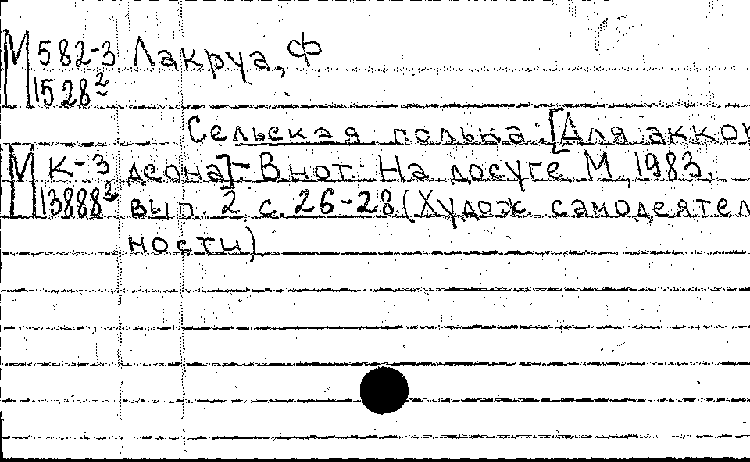 М 582-3 Лакруа, Ф
1528²
Сельская полька: [Для аккор
М К-3 деона]- В нот: На досуге М, 1983,
13888² вып. 2, с. 26-28 (Худож самодеятел
ности)